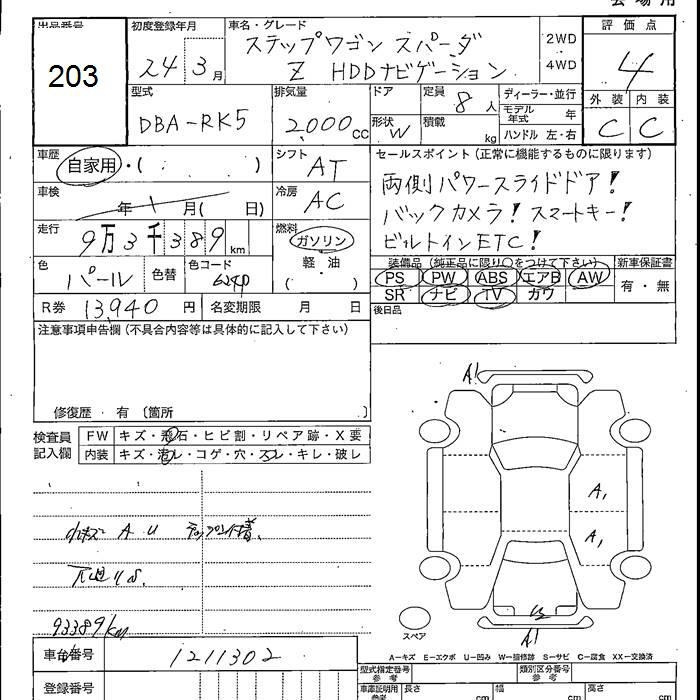 会場用
出品番号 203
初度登録年月 24年 3月
車名・グレード ステップワゴン スパーダ
Z HDDナビゲーション
2WD
4WD
評価点 4
外装 C 内装 C
型式 DBA-RK5
排気量 2,000cc
ドア
形状 W
定員 8人
積載 kg
ディーラー・並行
モデル年式 年
ハンドル 左・右
車歴 自家用・( )
シフト AT
車検 年 月( 日)
冷房 AC
走行 9万3千389km
燃料 ガソリン
軽・油
( )
色 パール 色替 色コード 6240
R券 13,940円 名変期限 月 日
セールスポイント(正常に機能するものに限ります)
両側パワースライドドア!
バックカメラ! スマートキー!
ビルトインETC!
装備品(純正品に限り○をつけて下さい) 新車保証書
PS PW ABS エアB AW 有・無
SR ナビ TV カワ
後日品
注意事項申告欄(不具合内容等は具体的に記入して下さい)
修復歴・有(箇所 )
検査員記入欄
FW キズ・飛石・ヒビ割・リペア跡・X要
内装 キズ・汚レ・コゲ・穴・スレ・キレ・破レ
小キズ A U
93389km
A1
A1
A1
A1
スペア
A-キズ E-エクボ U-凹み W-補修跡 S-サビ C-腐食 XX-交換済
車台番号 1211302
登録番号
型式指定番号 参考
類別区分番号 参考
車庫証明用 参考 長さ cm 幅 cm 高さ cm